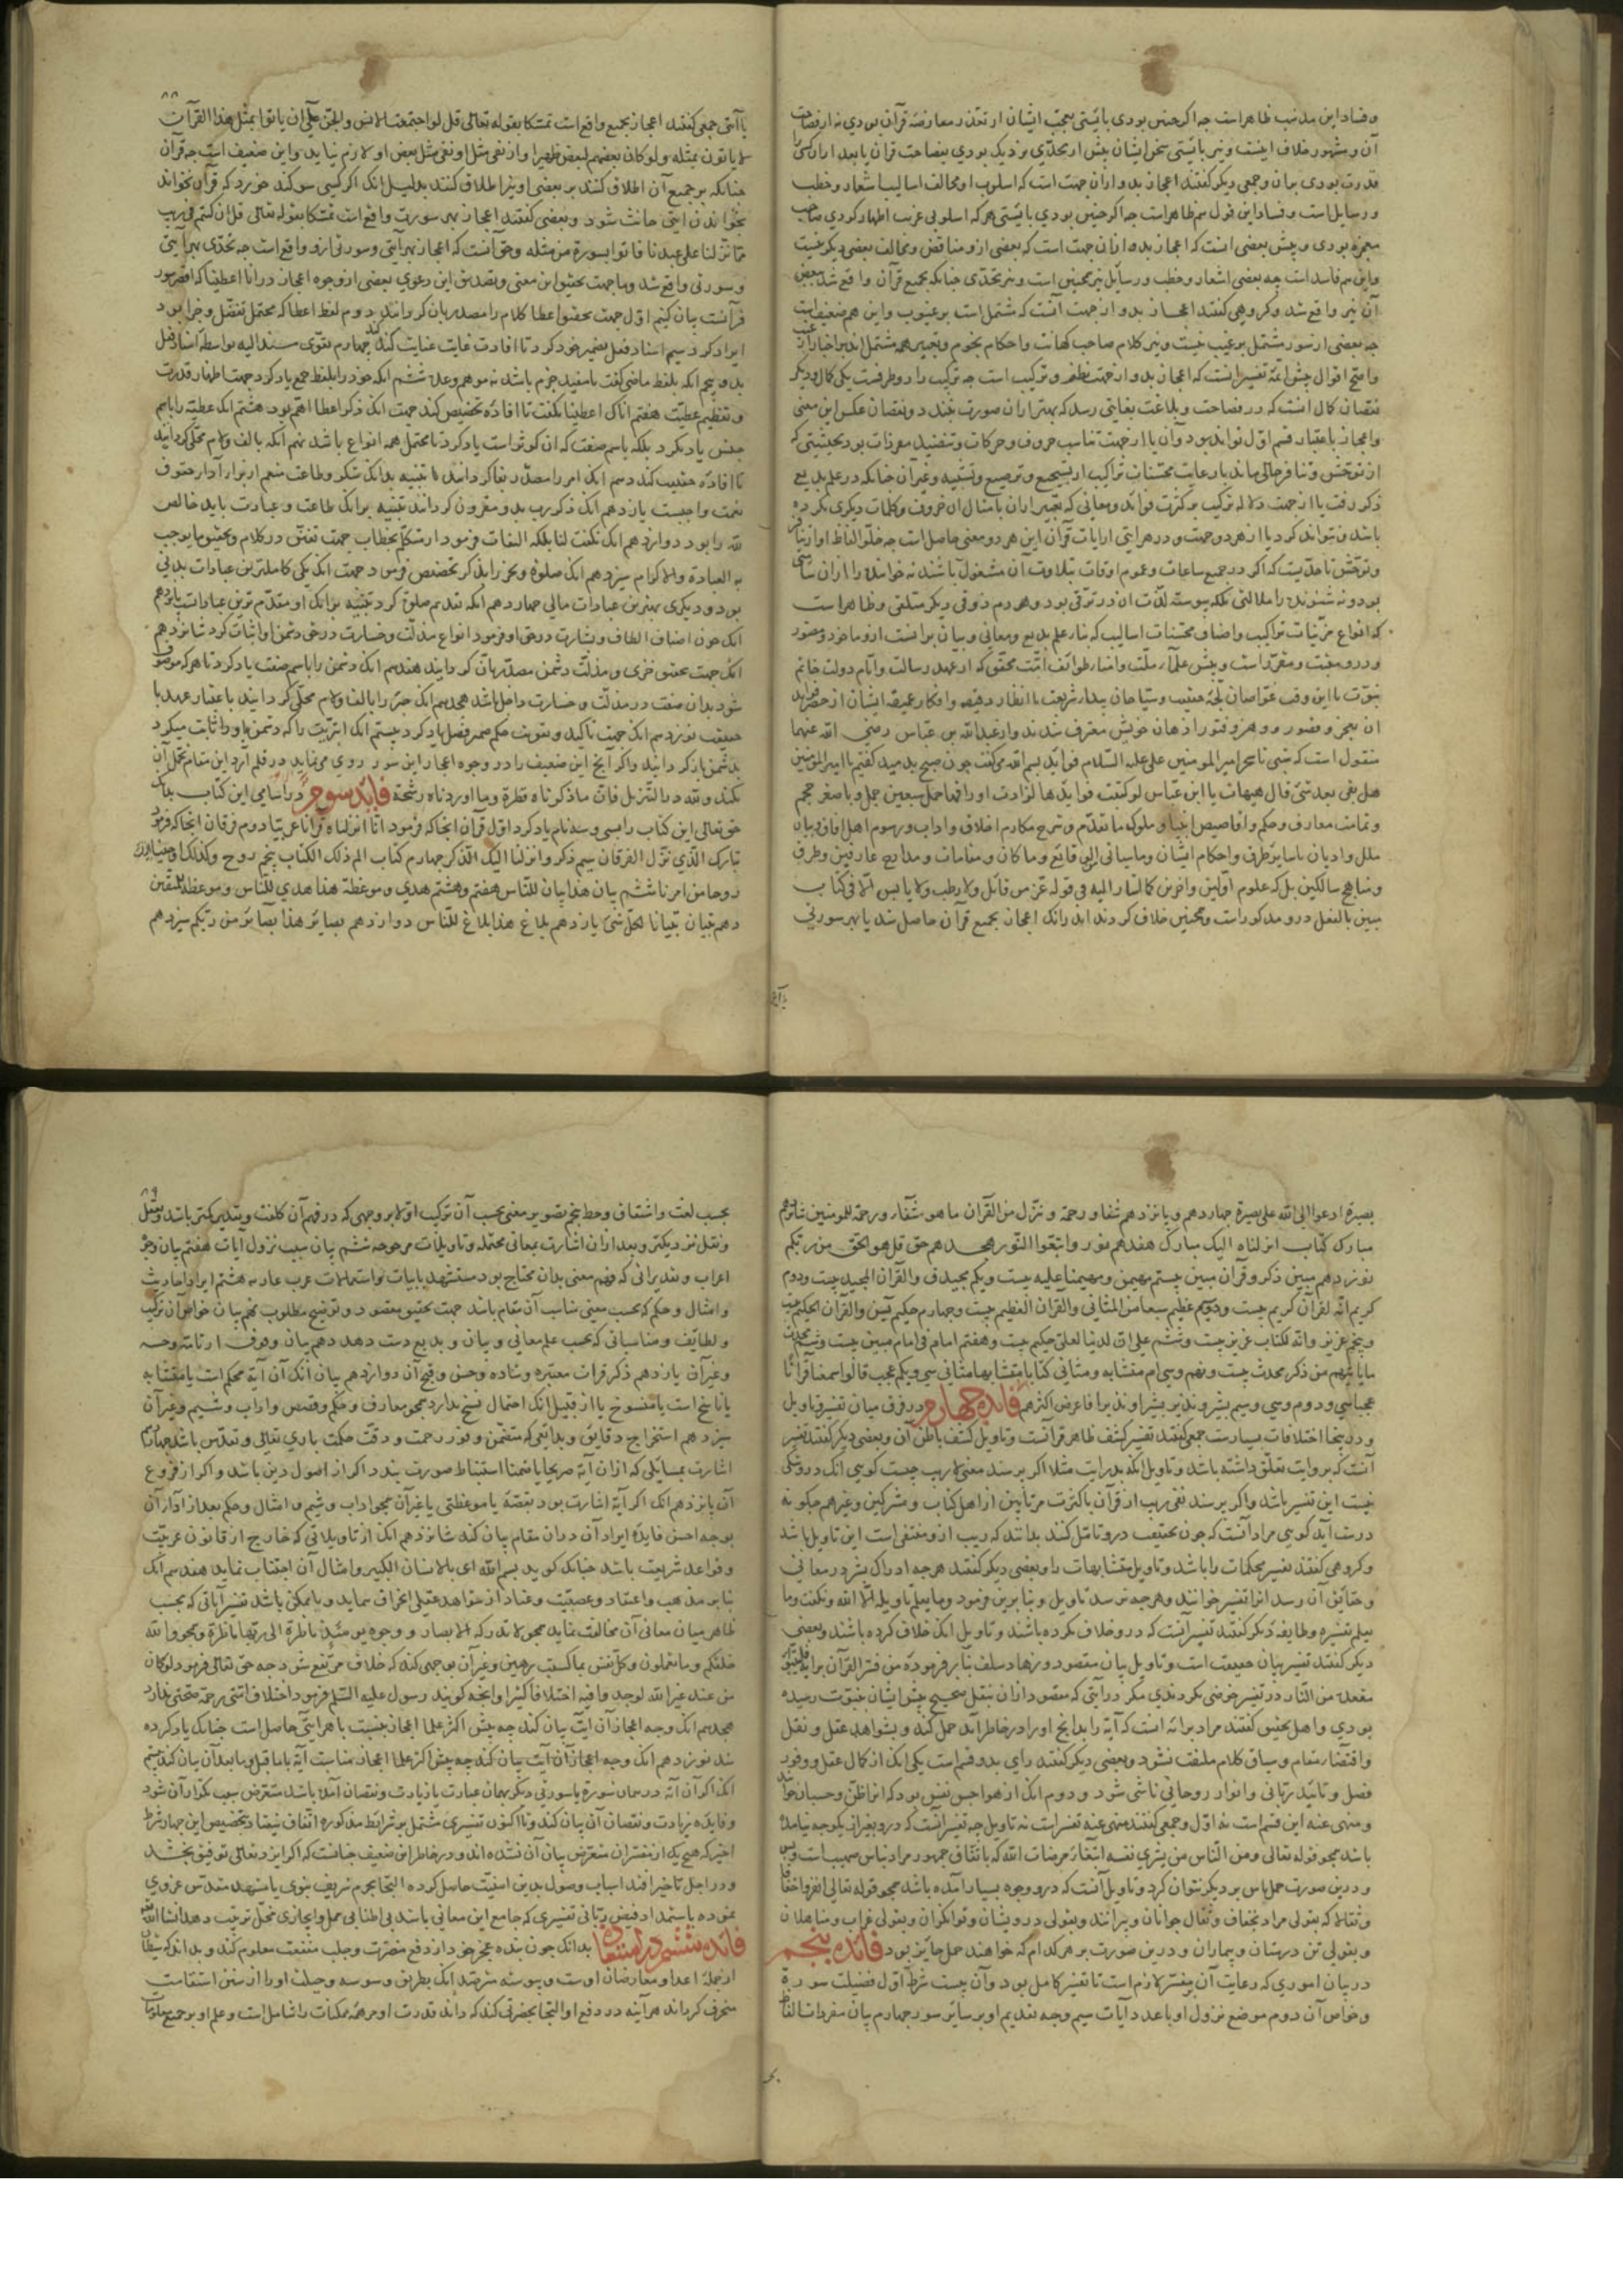 و فساد این مذهب ظاهر است چه اگر چنین بودی بایستی تعجب ایشان از تعذر معارضهٔ قرآن بودی نه از فصاحت
آن و مشهور خلاف اینست و نیز بایستی سخن ایشان پیش از تحدی نزدیک بودی بفصاحت قرآن یا بعد از آن کسی را
قدرت بودی بر آن و جمعی دیگر گفتند اعجاز بدو از آن جهت است که اسلوب او مخالف اسالیب اشعار و خطب
و رسایل است و فساد این قول هم ظاهر است چه اگر چنین بودی بایستی هر که اسلوبی غریب اظهار کردی صاحب
معجزه بودی و پیش بعضی آنست که اعجاز بدو از آن جهت است که بعضی ازو مناقض و مخالف بعضی دیگر نیست
و این هم فاسد است چه بعضی اشعار و خطب و رسایل نیز همچنین است و نیز تحدی چنانکه بجمیع قرآن واقع شد ببعض
آن نیز واقع شد و گروهی گفتند اعجاز بدو از جهت آنست که مشتمل است بر غیوب و این هم ضعیف است
چه بعضی از سور مشتمل بر غیب نیست و نیز کلام صاحب کهانت و احکام نجوم و تعبیر همه مشتمل اند بر اخبار از غیب
و اصح اقوال پیش ائمهٔ تفسیر آنست که اعجاز بدو از جهت نظم و ترکیب است چه ترکیب را دو طرفست یکی کمال و دیگر
نقصان کمال آنست که در فصاحت و بلاغت بغایتی رسد که بهتر از آن صورت نبندد و نقصان عکس این معنی
و اعجاز باعتبار قسم اول تواند بود و آن یا از جهت تناسب حروف و حرکات و تنضید مفردات بود بحیثیتی که
از توحش و تنافر خالی ماند یا رعایت محسنات تراکیب از تسجیع و ترصیع و تشبیه و غیر آن چنانکه در علم بدیع
ذکر رفت یا از جهت دلالهٔ ترکیب بر کثرت فواید و معانی که تعبیر از آن بامثال آن حروف و کلمات دیگری نکرده
باشد و نتواند کرد یا از هر دو جهت و در هر آیتی از آیات قرآن این هر دو معنی حاصل است چه خلو الفاظ او از تنافر
و توحش تا حدیست که اگر در جمیع ساعات و عموم اوقات بتلاوت آن مشغول باشند نه خواننده را از آن سآمتی
بود و نه شنونده را ملالتی بلکه پیوسته لذت آن در ترقی بود و هر دم ذوقی دیگر متلقی و ظاهر است
که انواع مزینات تراکیب و اصناف محسنات اسالیب که بنای علم بدیع و معانی و بیان بر آنست ازو ماخوذ و متصور
و درو مثبت و مقرر است و پیش علمای ملت و انصار طوائف امت محقق که از عهد رسالت و ایام دولت خاتم
نبوت تا این وقت غواصان لجهٔ حقیقت و سیاحان بیداء شریعت با انظار دقیقه و افکار عمیقه ایشان از حصر فواید
آن بعجز و قصور و وهن و فتور اذهان خویش معترف شدند و از عبدالله بن عباس رضی الله عنهما
منقول است که شبی تا سحر امیر المومنین علی علیه السلام فواید بسم الله می‌گفت چون صبح بدمید گفتم یا امیر المؤمنین
هل بقی بعد شیء قال هیهات یا ابن عباس لو کتبت فوایدها لزادت اوراقها حمل سبعین جمل و با صغر حجم
و تمامت معارف و حکم و اقاصیص انبیا و ملوک ما تقدم و شرح مکارم اخلاق و آداب و رسوم اهل آفاق و بیان
ملل و ادیان باسایر طرف و احکام ایشان و ما سیاتی الی قائم و ما کان و مقامات و مدارج عارفین و طرق
و مناهج سالکین بل که علوم اولین و آخرین کما اشار الیه فی قوله عز من قائل ولا رطب ولا یابس الا فی کتاب
مبین بالفعل درو مذکور است و همچنین خلاف کردند اندر آنک اعجاز بجمیع قرآن حاصل شد یا بهر سورتی
یا آیتی جمعی گفتند اعجاز بجمیع واقع است تمسکا بقوله تعالی قل لو اجتمعت الانس والجن علی ان یاتوا بمثل هذا القرآن
لا یاتون بمثله ولو کان بعضهم لبعض ظهیرا و از نفی مثل او نفی مثل بعض او لازم نیاید و این ضعیف است چه قرآن
چنانکه بر جمیع آن اطلاق کنند بر بعضی او نیز اطلاق کنند بدلیل آنک اگر کسی سوگند خورد که قرآن نخواند
بخواندن آیتی حانث شود و بعضی گفتند اعجاز بهر سورت واقع است تمسکا بقوله تعالی قل ان کنتم فی ریب
مما نزلنا علی عبدنا فاتوا بسورة من مثله و حق آنست که اعجاز بهر آیتی و سورتی ازو واقع است چه تحدی بهر آیتی
و سورتی واقع شد و ما جهت تحقیق این معنی و تصدیق این دعوی بعضی از وجوه اعجاز در انا اعطیناک که اقصر سور
قرآنست بیان کنیم اول جهت تحقیق اعطا کلام را مصدر بان گردانید دوم لفظ اعطا که محتمل تفضل و جزا بود
ایراد کرد سیم اسناد فعل بضمیر خود کرد تا افادت غایت عنایت کند چهارم تقوی مسند الیه بواسطهٔ اسناد فعل
بدو پنجم آنکه بلفظ ماضی گفت تا مفید جزم باشد نه موهم وعده ششم آنکه خود را بلفظ جمع یاد کرد جهت اظهار قدرت
و تعظیم عطیت هفتم آنک اعطینا بگفت تا افادهٔ تخصیص کند جهت آنک ذکر اعطا اهم بود هشتم آنک عطیه را باسم
جنس یاد نکرد بلکه باسم صفت که آن کوثر است یاد کرد تا محتمل همه انواع باشد نهم آنکه بالف و لام محلی گردانید
تا افادهٔ حقیقت کند دهم آنک امر را مصدر بفا گردانید تا تنبیه بود که شکر و طاعت منعم از لوازم آداء حقوق
نعمت واجبست یازدهم آنک ذکر رب بدو مقرون گردانید تنبیه بر آنک طاعت و عبادت باید خالص
لله را بود دوازدهم آنک نگفت لنا بلکه التفات فرمود از متکلم بخطاب جهت تفنن در کلام و تحقیق ما یوجب
به العبادة والاکرام سیزدهم آنک صلوة و نحر را بذکر تخصیص فرمود جهت آنک یکی کاملترین عبادات بدنی
بود و دیگری بهترین عبادات مالی چهاردهم آنکه تقدیم صلوة کرد تنبیه بر آنک او مقدم ترین عباداتست پانزدهم
آنک چون اصناف الطاف و بشارت در حق او فرمود انواع مذلت و خسارت در حق دشمن او اثبات کرد شانزدهم
آنک جهت تحقیق خزی و مذلت دشمن مصدر بان گردانید هفدهم آنک دشمن را باسم صفت یاد کرد تا هر که موصوف
شود بدان صفت در مذلت و خسارت داخل باشد هجدهم آنک خبر را بالف و لام محلی گردانید باعتبار عهد یا
حقیقت نوزدهم آنک جهت تاکید و تقویت حکم ضمیر فصل یاد کرد بیستم آنک ابتریت را که دشمن باو اثبات میکرد
بدشمن باز گردانید و اگر آنچ این ضعیف را در وجوه اعجاز این سور روی می‌نماید در قلم آرد این مقام تحمل آن
نکند ولله در التنزیل فان ما ذکرناه قطرة وما اوردناه رشحة فایدهٔ سوم در اسامی این کتاب بدانک
حق تعالی این کتاب را بسی و سه نام یاد کرد اول قرآن آنجا که فرمود انا انزلناه قرآنا عربیا دوم فرقان آنجا که فرمود
تبارک الذی نزل الفرقان سیم ذکر و انزلنا الیک الذکر چهارم کتاب الم ذلک الکتاب پنجم روح و کذلک اوحینا الیک
روحا من امرنا ششم بیان هذا بیان للناس هفتم و هشتم هدی و موعظة هذا هدی للناس و موعظة للمتقین
دهم تبیان تبیانا لکل شیء یازدهم بلاغ هذا بلاغ للناس دوازدهم بصایر هذا بصآئر من ربکم سیزدهم
بصیرة ادعوا الی الله علی بصیرة چهاردهم و پانزدهم شفا و رحمة و ننزل من القرآن ما هو شفآء و رحمة للمومنین شانزدهم
مبارک کتاب انزلناه الیک مبارک هفدهم نور واتبعوا النور هجدهم حق قل هو الحق من ربکم
نوزدهم مبین ذکر و قرآن مبین بیستم مهیمن و مهیمنا علیه بیست و یکم مجید ق والقرآن المجید بیست و دوم
کریم انه لقرآن کریم بیست و سیم عظیم سبعا من المثانی والقرآن العظیم بیست و چهارم حکیم یس والقرآن الحکیم بیست
و پنجم عزیز و انه لکتاب عزیز بیست و ششم علی انه لدینا لعلی حکیم بیست و هفتم امام فی امام مبین بیست و هشتم محدث
ما یاتیهم من ذکر محدث بیست و نهم و سی ام متشابه و مثانی کتابا متشابها مثانی سی و یکم عجب قالوا سمعنا قرآنا
عجبا سی و دوم و سی و سیم بشیر و نذیر بشیرا و نذیرا فاعرض اکثرهم فایدهٔ چهارم در فرق میان تفسیر و تاویل
و در اینجا اختلافات بسیارست جمعی گفتند تفسیر کشف ظاهر قرآنست و تاویل کشف باطن آن و بعضی دیگر گفتند تفسیر
آنست که بروایت تعلق داشته باشد و تاویل آنکه بدرایت مثلا اگر پرسند معنی لا ریب چیست گویی آنک درو شکی
نیست این تفسیر باشد و اگر پرسند نفی ریب از قرآن با کثرت مرتابین از اهل کتاب و مشرکین و غیرهم چگونه
درست آید گویی مراد آنست که چون بحقیقت درو تامل کنند بدانند که ریب ازو منتفی است این تاویل باشد
و گروهی گفتند تفسیر محکمات را باشد و تاویل متشابهات را و بعضی دیگر گفتند هر چه ادراک بشر در معانی
و حقایق آن رسد آنرا تفسیر خوانند و هر چه نرسد تاویل و بنابرین فرمود و ما یعلم تاویله الا الله و نگفت و ما
یعلم تفسیره و طایفهٔ دیگر گفتند تفسیر آنست که درو خلاف نکرده باشند و تاویل آنک خلاف کرده باشند و بعضی
دیگر گفتند تفسیر بیان حقیقت است و تاویل بیان مقصود و زهاد سلف بنابر فرمودهٔ من فسر القرآن برایه فلیتبوأ
مقعده من النار در تفسیر خوضی نکردندی مگر در آیتی که مقصود از آن بنقل صحیح پیش ایشان بثبوت رسیده
بودی و اهل تحقیق گفتند مراد برایه است که آیة را بدانچ او را در خاطر آید حمل کند و بشواهد عقل و نقل
و اقتضاء مقام و سیاق کلام ملتفت نشود و بعضی دیگر گفتند رای بدو قسم است یکی آنک از کمال عقل و وفور
فضل و تائید ربانی و انوار روحانی ناشی شود و دوم آنک از هواجس نفس بود که آنرا ظن و حسبان خوانند
و منهی عنه این قسم است نه اول و جمعی گفتند منهی عنه تفسیر است نه تاویل چه تفسیر آنست که درو بغیر از یک وجه نیامده
باشد همچو قوله تعالی و من الناس من یشری نفسه ابتغآء مرضات الله که باتفاق جمهور مراد بناس صهیب است و بس
و درین صورت حمل ناس بر دیگر نتوان کرد و تاویل آنست که درو وجوه بسیار آمده باشد همچو قوله تعالی انفروا خفافا
و ثقالا که بقولی مراد بخفاف و ثقال جوانان و پیرانند و بقولی درویشان و توانگران و بقولی عزاب و متاهلان
و بقولی تن درستان و بیماران و درین صورت بر هر کدام که خواهند حمل جایز بود فایدهٔ پنجم
در بیان اموری که رعایت آن بر مفسر لازم است تا تفسیر کامل بود و آن بیست شرط اول فضیلت سورة
و خواص آن دوم موضع نزول او با عدد آیات سیم وجه تقدیم او بر سایر سور چهارم بیان مفردات الفاظ
بحسب لغت و اشتقاق و خط پنجم تصویر معنی بحسب آن ترکیب اولا بر وجهی که در فهم آن کلفت و تقدیر کمتر باشد و بعقل
و نقل نزدیکتر و بعد از آن اشارت بمعانی محتمله و تاویلات مرجوحه ششم بیان سبب نزول آیات هفتم بیان وجوه
اعراب و تقدیراتی که فهم معنی بدان محتاج بود مستشهد بابیات و استعمالات عرب عاربه هشتم ایراد احادیث
و امثال و حکم که بحسب معنی مناسب آن مقام باشد جهت تحقیق مقصود و توضیح مطلوب نهم بیان خواص آن ترکیب
و لطایف و مناسباتی که بحسب علم معانی و بیان و بدیع دست دهد دهم بیان وقوف از تامه و حسنه
و غیر آن یازدهم ذکر قرات معتبره و شاذه و حسن و قبح آن دوازدهم بیان آنک آن آیة محکم است یا متشابه
یا ناسخ است یا منسوخ یا از قبیل آنک احتمال نسخ ندارد همچو معارف و حکم و قصص و آداب و شیم و غیر آن
سیزدهم استخراج دقایق و بدایعی که متضمن وفور رحمت و دقت حکمت باری تعالی و تقدس باشد چهاردهم
اشارت بمسایلی که از آن آیة صریحا یا ضمنا استنباط صورت بندد اگر از اصول دین باشد و اگر از فروع
آن پانزدهم آنک اگر آیة اشارت بود بقصهٔ یا موعظتی یا غیر آن همچو آداب و شیم و امثال و حکم بعد از ادآء آن
بوجه احسن فایدهٔ ایراد آن در آن مقام بیان کند شانزدهم آنک از تاویلاتی که خارج از قانون عربیت
و قواعد شریعت باشد چنانک گوید بسم الله ای بالانسان الکبیر و امثال آن اجتناب نماید هفدهم آنک
بنابر مذهب و اعتقاد و عصبیت و عناد از شواهد عقلی انحراف ننماید و تا ممکن باشد تفسیر آیاتی که بحسب
ظاهر میان معانی آن مخالفت نماید همچو لا تدرکه الابصار و وجوه یومئذ ناظرة الی ربها ناظرة و همچو والله
خلقکم و ما تعملون و کل نفس بما کسبت رهین و غیر آن بوجهی کند که خلاف مرتفع شود چه حق تعالی فرمود لو کان
من عند غیر الله لوجدوا فیه اختلافا کثیرا و آنچه گویند رسول علیه السلم فرمود اختلاف امتی رحمة صحتی ندارد
هجدهم آنک وجه اعجاز آن آیت بیان کند چه پیش اکثر علما اعجاز بجنسیت با هر آیتی حاصل است چنانک یاد کرده
شد نوزدهم آنک وجه اعجاز آن آیت بیان کند چه پیش اکثر علما اعجاز مناسبت آیة با ما قبل و ما بعد آن بیان کند بیستم
آنک اگر آن آیة در همان سورة یا سورتی دیگر بهمان عبارت یا زیادت و نقصان آمده باشد متعرض سبب تکرار آن شود
و فایدهٔ زیادت و نقصان آن بیان کند و تا اکنون تفسیری مشتمل بر شرایط مذکوره اتفاق نیفتاد بتخصیص این چهار شرط
اخیر که هیچ یک از مفسران متعرض بیان آن نشده اند و در خاطر این ضعیف چنانست که اگر ایزد تعالی توفیق بخشد
و در اجل تاخیر افتد اسباب وصول بدین امنیت حاصل کرده التجا بحرم شریف نبوی یا مشهد مقدس غروی
نموده باستمداد فیض ربانی تفسیری که جامع این معانی باشد بی اطنابی ممل و ایجازی مخل ترتیب دهد ان شا الله
فایده ششم در استعاذه بدانک چون بنده عجز خود از دفع مضرت و جلب منفعت معلوم کند و بداند که شیطان
از جملهٔ اعدا و معارضان اوست و پیوسته مترصد آنک بطریق وسوسه و حیلت او را از سنن استقامت
منحرف گرداند هر آینه در دفع او التجا بحضرتی کند که داند قدرت او مر همه ممکنات را شامل است و علم او بر جمیع معلومات